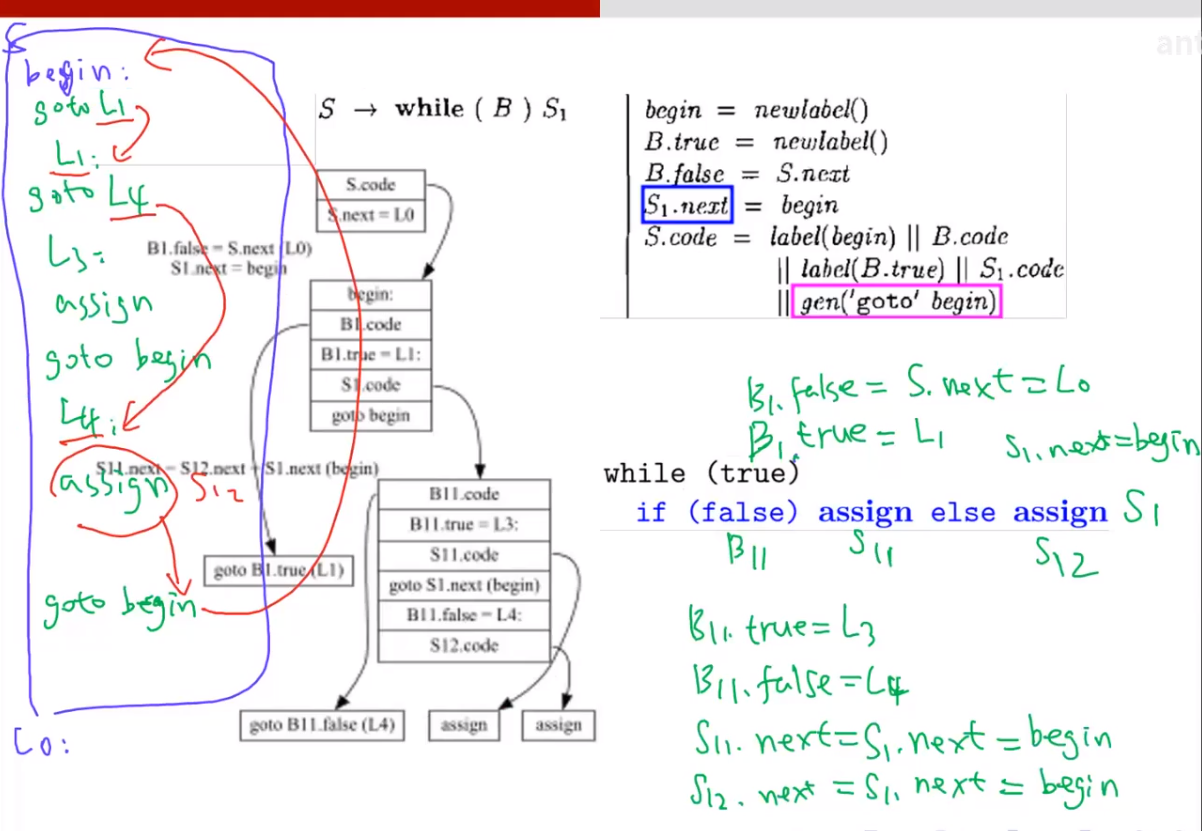 begin:
goto L1
L1:
goto L4
L3:
assign
goto begin
L4:
assign S12
goto begin
L0:
S → while ( B ) S₁
S.code
S.next = L0
B1.false = S.next (L0)
S1.next = begin
begin:
B1.code
B1.true = L1:
S1.code
goto begin
S11.next = S12.next = S1.next (begin)
B11.code
B11.true = L3:
S11.code
goto S1.next (begin)
B11.false = L4:
S12.code
goto B1.true (L1)
goto B11.false (L4)
assign
assign
begin = newlabel()
B.true = newlabel()
B.false = S.next
S₁.next = begin
S.code = label(begin) || B.code
|| label(B.true) || S₁.code
|| gen('goto' begin)
B1.false = S.next = L0
B1.true = L1
S1.next=begin
while (true)
if (false) assign else assign S1
B11 S11 S12
B11.true = L3
B11.false = L4
S11.next = S1.next = begin
S12.next = S1.next = begin